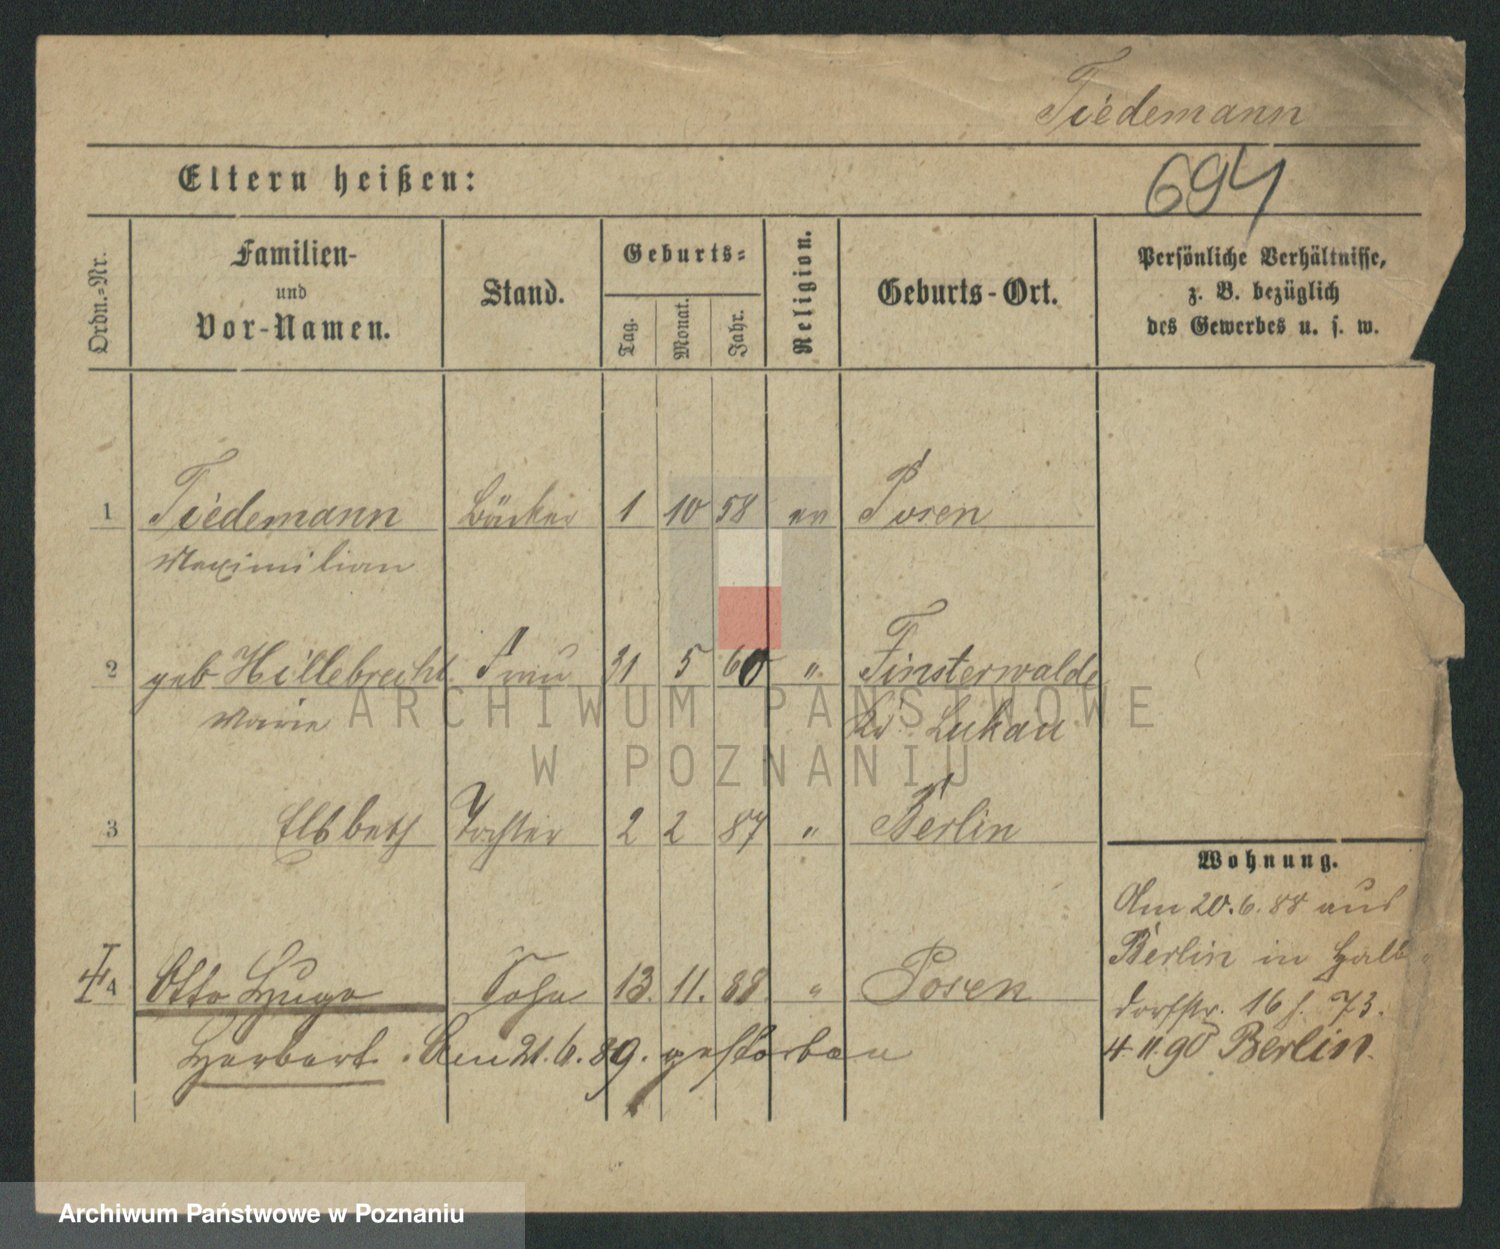 Tiedemann
694
Eltern heißen:
Ordn.-Nr.
Familien-
und
Vor-Namen.
Stand.
Geburts-
Tag.
Monat.
Jahr.
Religion.
Geburts-Ort.
Persönliche Verhältnisse,
z. B. bezüglich
des Gewerbes u. s. w.
1 Tiedemann Bäcker 1 10 58 ev Posen
Maximilian
2 geb Hillebrecht Frau 31 5 60 " Finsterwalde
Marie Kr Lukau
3 Elsbeth Tochter 2 2 87 " Berlin
4 Otto Hugo Sohn 13. 11. 88 " Posen
Herbert. Am 21.6.89. gestorben
Wohnung.
Am 20.6.88 aus
Berlin in Halb
dorfstr. 16 f. 73.
4 11 90 Berlin.
ARCHIWUM PAŃSTWOWE
W POZNANIU
Archiwum Państwowe w Poznaniu